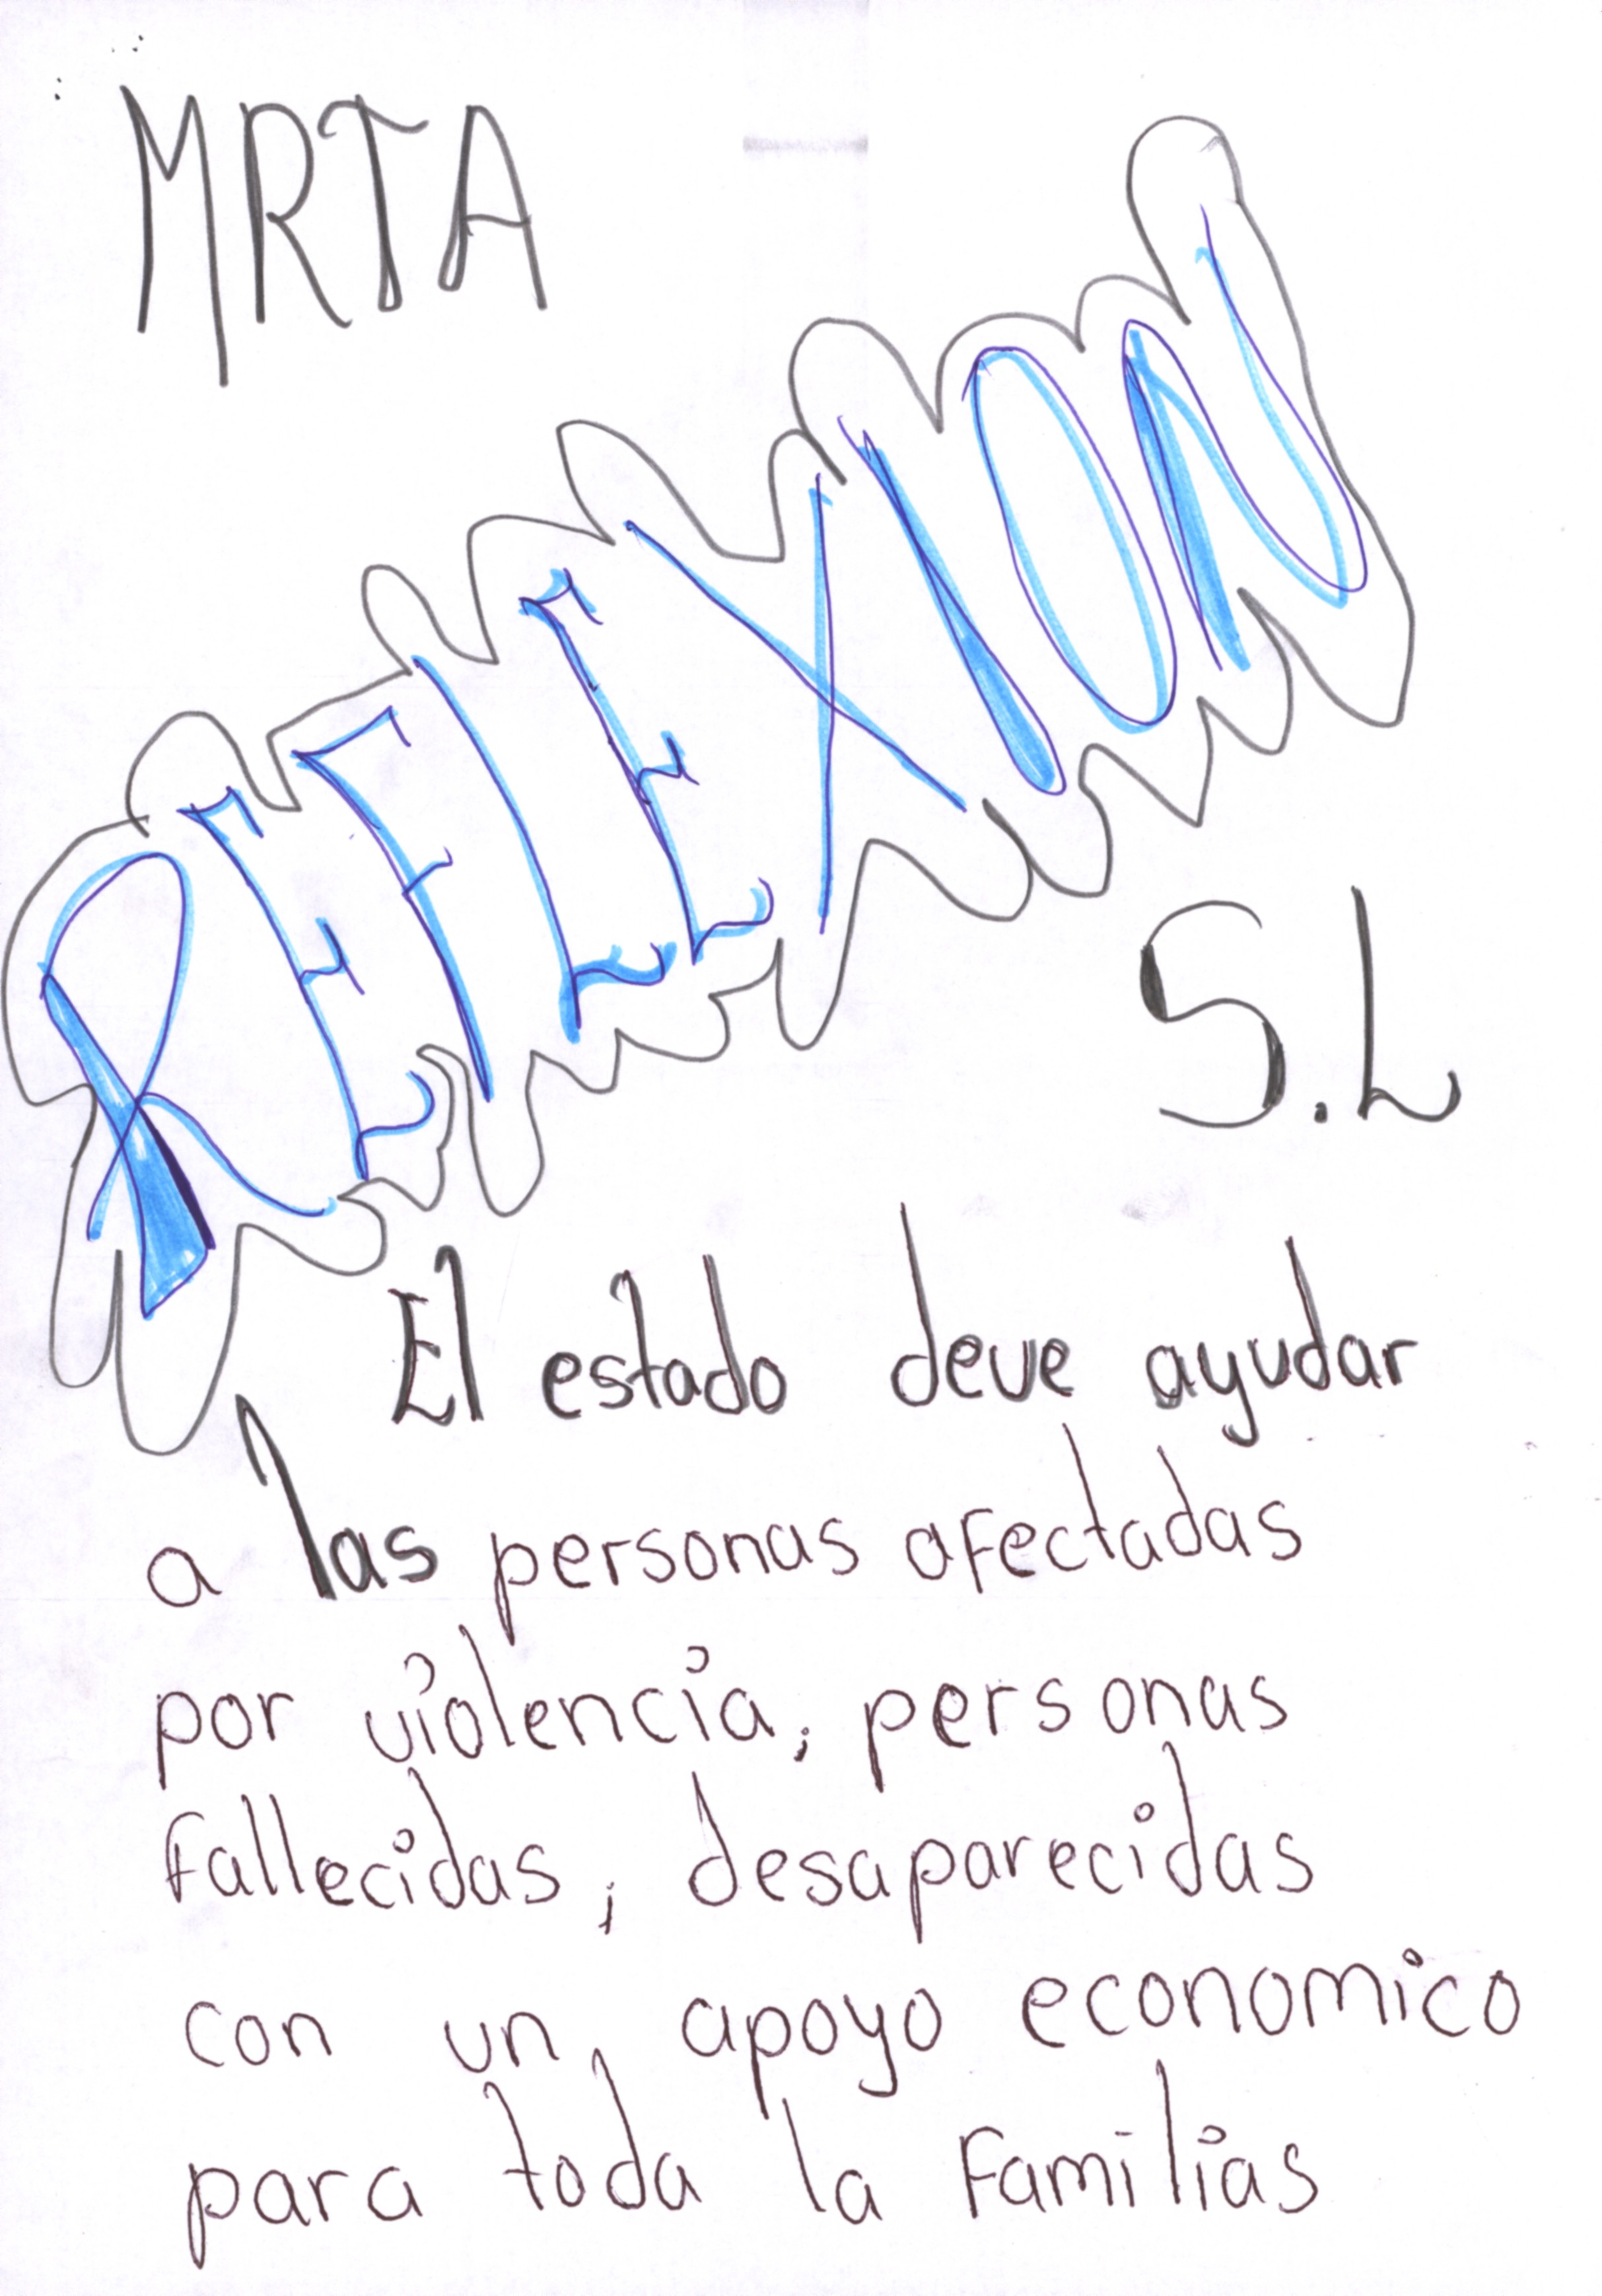 MRTA
REFLEXION
S.L
El estado deve ayudar
a las personas afectadas
por violencia, personas
fallecidas, desaparecidas
con un apoyo economico
para toda la familias